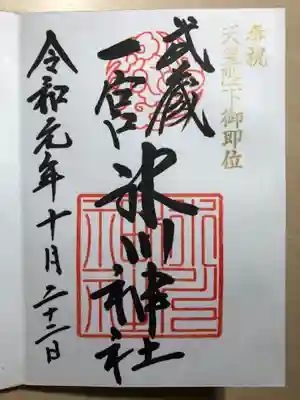 奉祝
天皇陛下御即位
武蔵
一宮
氷川神社
令和元年十月二十二日